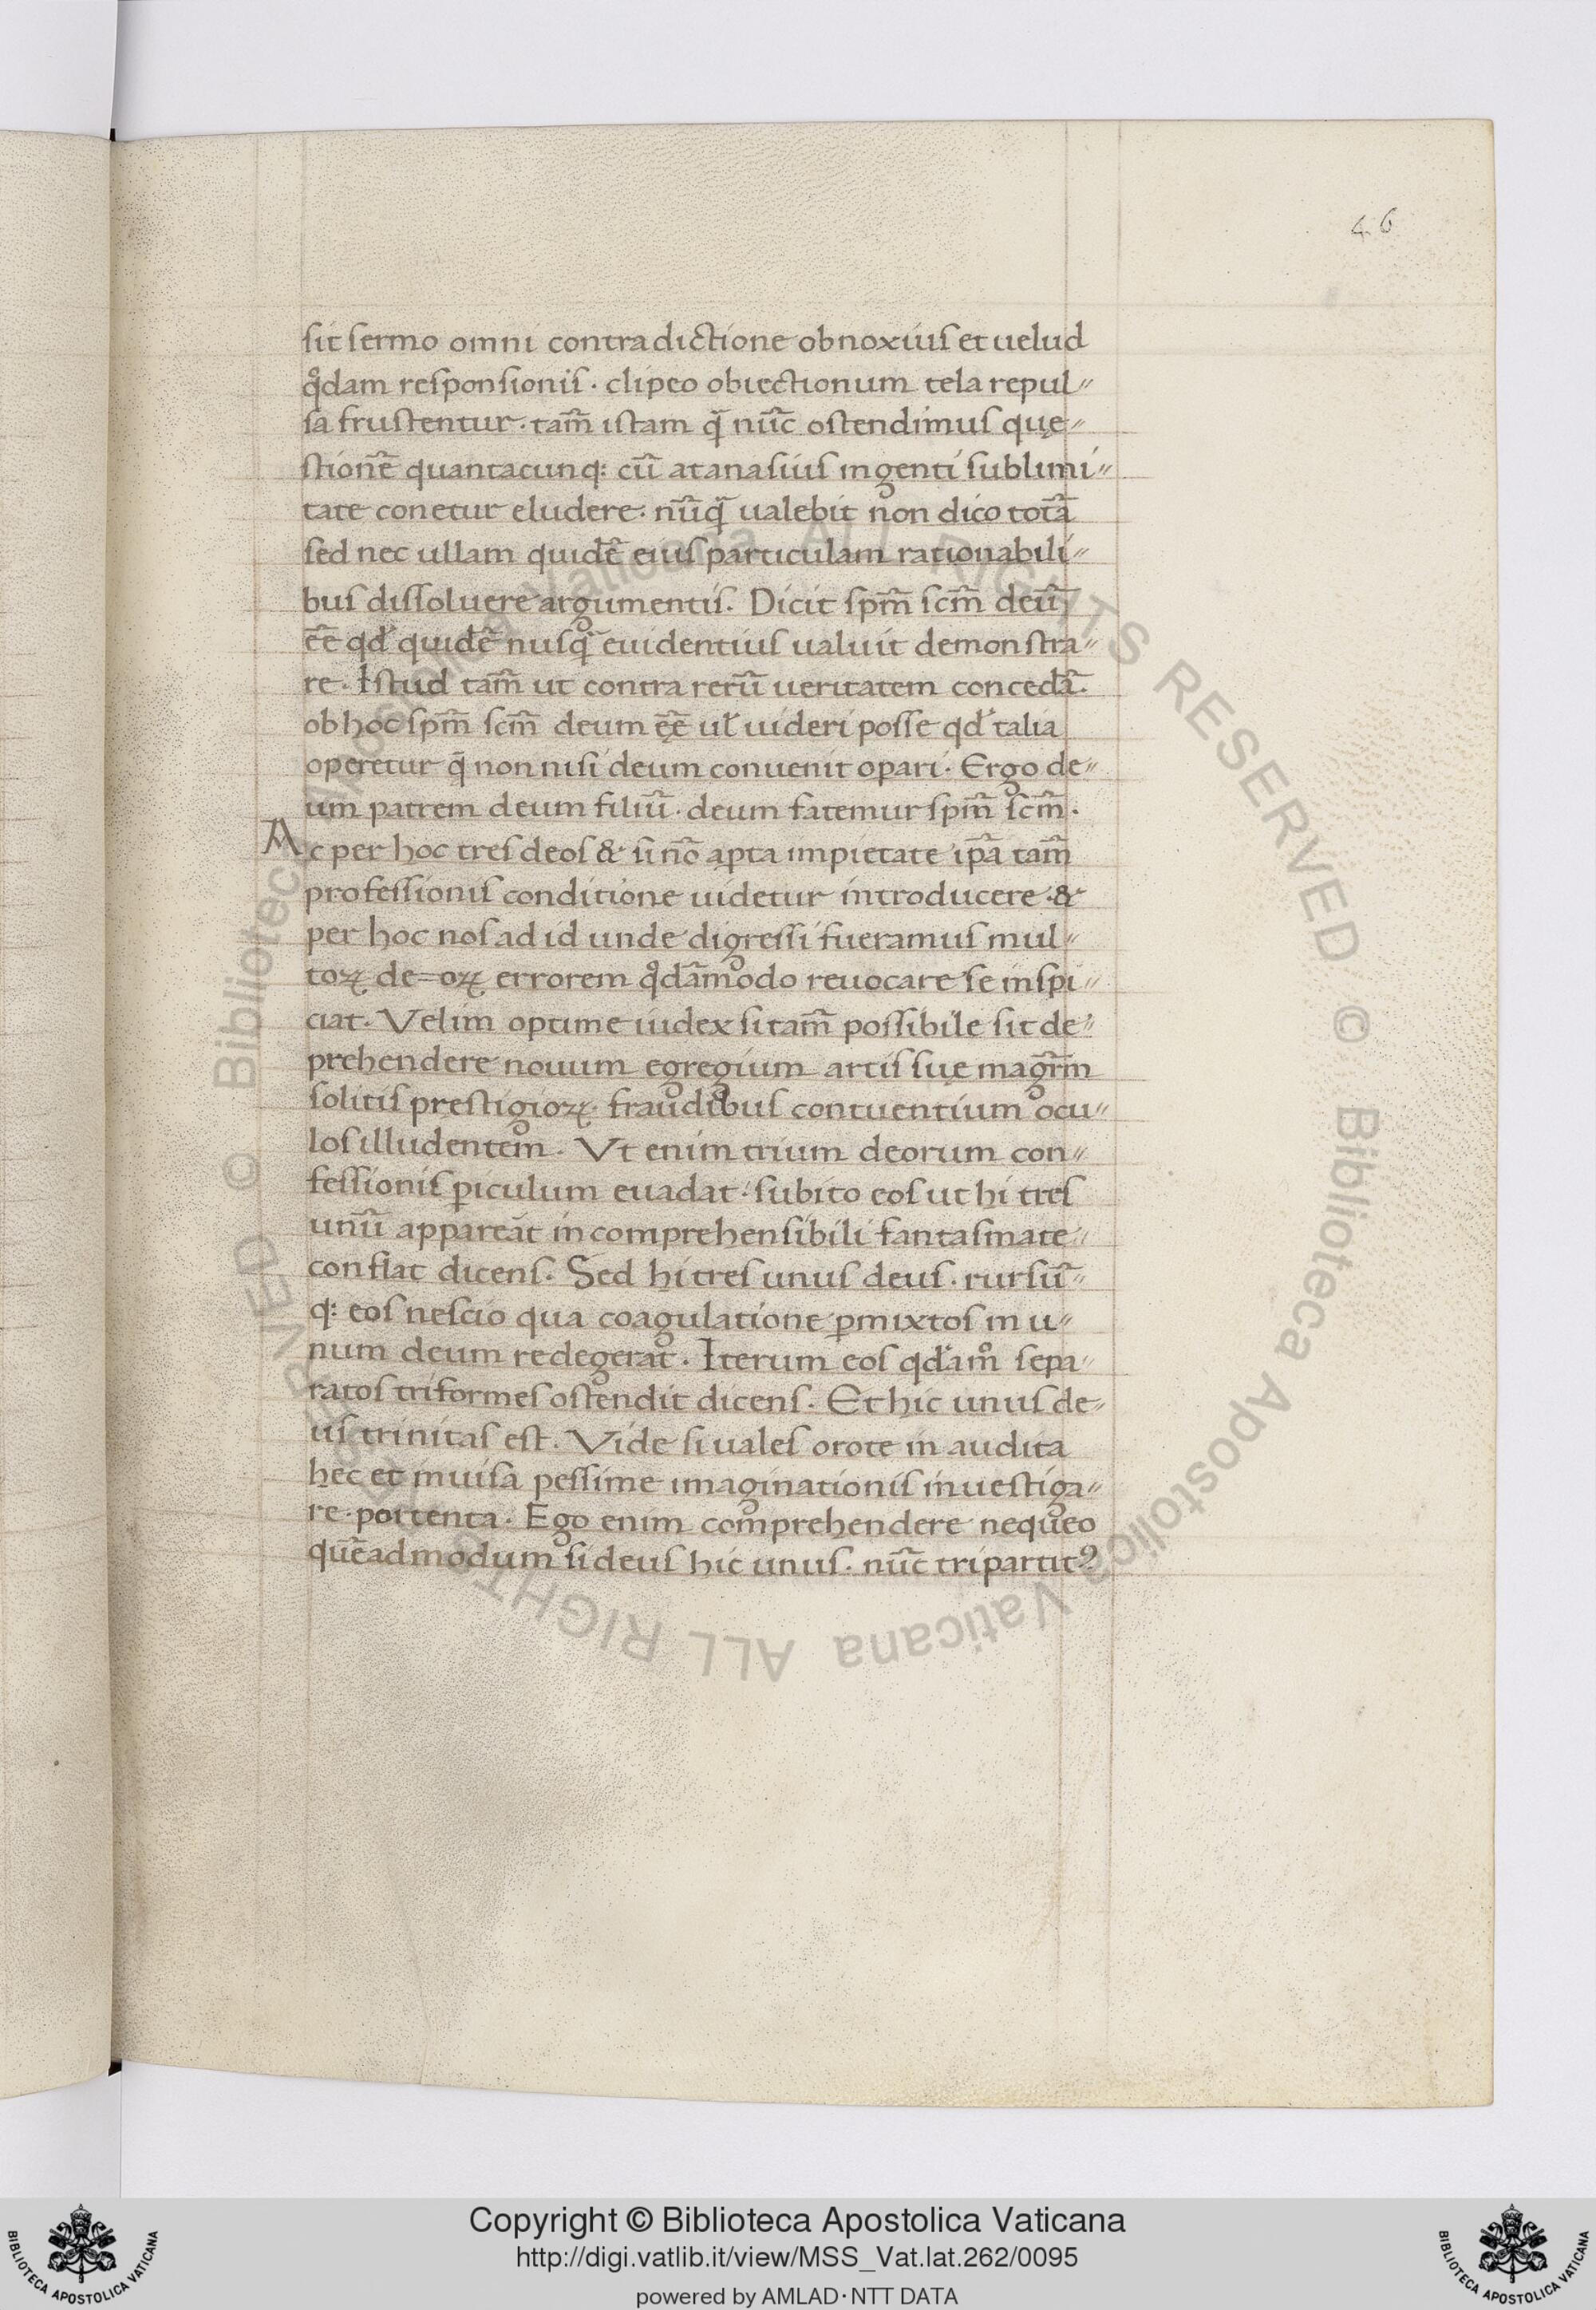 46
sit sermo omni contradictione obnoxius et uelud
qͦdam responsionis · clipeo obiectionum tela repul〃
sa frustentur · tam̃ istam q̃ nũc ostendimus quę〃
stionẽ quantacunq: cũ atanasius ingenti sublimi〃
tate conetur eludere · nũq̃ ualebit non dico totã
sed nec ullam quidẽ eius particulam rationabili〃
bus dissoluere argumentis. Dicit spm̃ scm̃ deũ
ẽe qđ quidẽ nusq̃ euidentius ualuit demonstra〃
re · Istud tam̃ ut contra rerũ ueritatem concedã·
ob hoc spm̃ scm̃ deum ę̃e ul̃ uideri posse qđ talia
operetur q̃ non nisi deum conuenit oꝑari · Ergo de〃
um patrem deum filiũ · deum fatemur spm̃ scm̃ ·
Ac per hoc tres deos & si nõ aꝑta impietate ip̃a tam̃
professionis conditione uidetur introducere · &
per hoc nos ad id unde digressi fueramus mul〃
toꝝ de=oꝝ errorem qͦdãmodo reuocare se inspi〃
ciat · Velim optime iudex si tam̃ possibile sit de〃
prehendere nouum egregium artis suę magr̃m
solitis prestigioꝝ · fraudibus contuentium ocu〃
los illudentem · Vt enim trium deorum con〃
fessionis ꝑiculum euadat · subito eos ut hi tres
unũ appareãt incomprehensibili fantasmate〃
conflat dicens · Sed hi tres unus deus · rursũ〃
q: eos nescio qua coagulatione ꝑmixtos in u〃
num deum redegerat · Iterum eos qđamͦ sepa〃
ratos triformes ostendit dicens · Et hic unus de〃
us trinitas est · Vide si uales orote in audita
hec et inuisa pessime imaginationis inuestiga〃
re · portenta · Ego enim comprehendere nequeo
quẽadmodum si deus hic unus · nũc tripartitꝰ
Copyright © Biblioteca Apostolica Vaticana
http://digi.vatlib.it/view/MSS_Vat.lat.262/0095
powered by AMLAD·NTT DATA
BIBLIOTECA APOSTOLICA VATICANA
BIBLIOTECA APOSTOLICA VATICANA